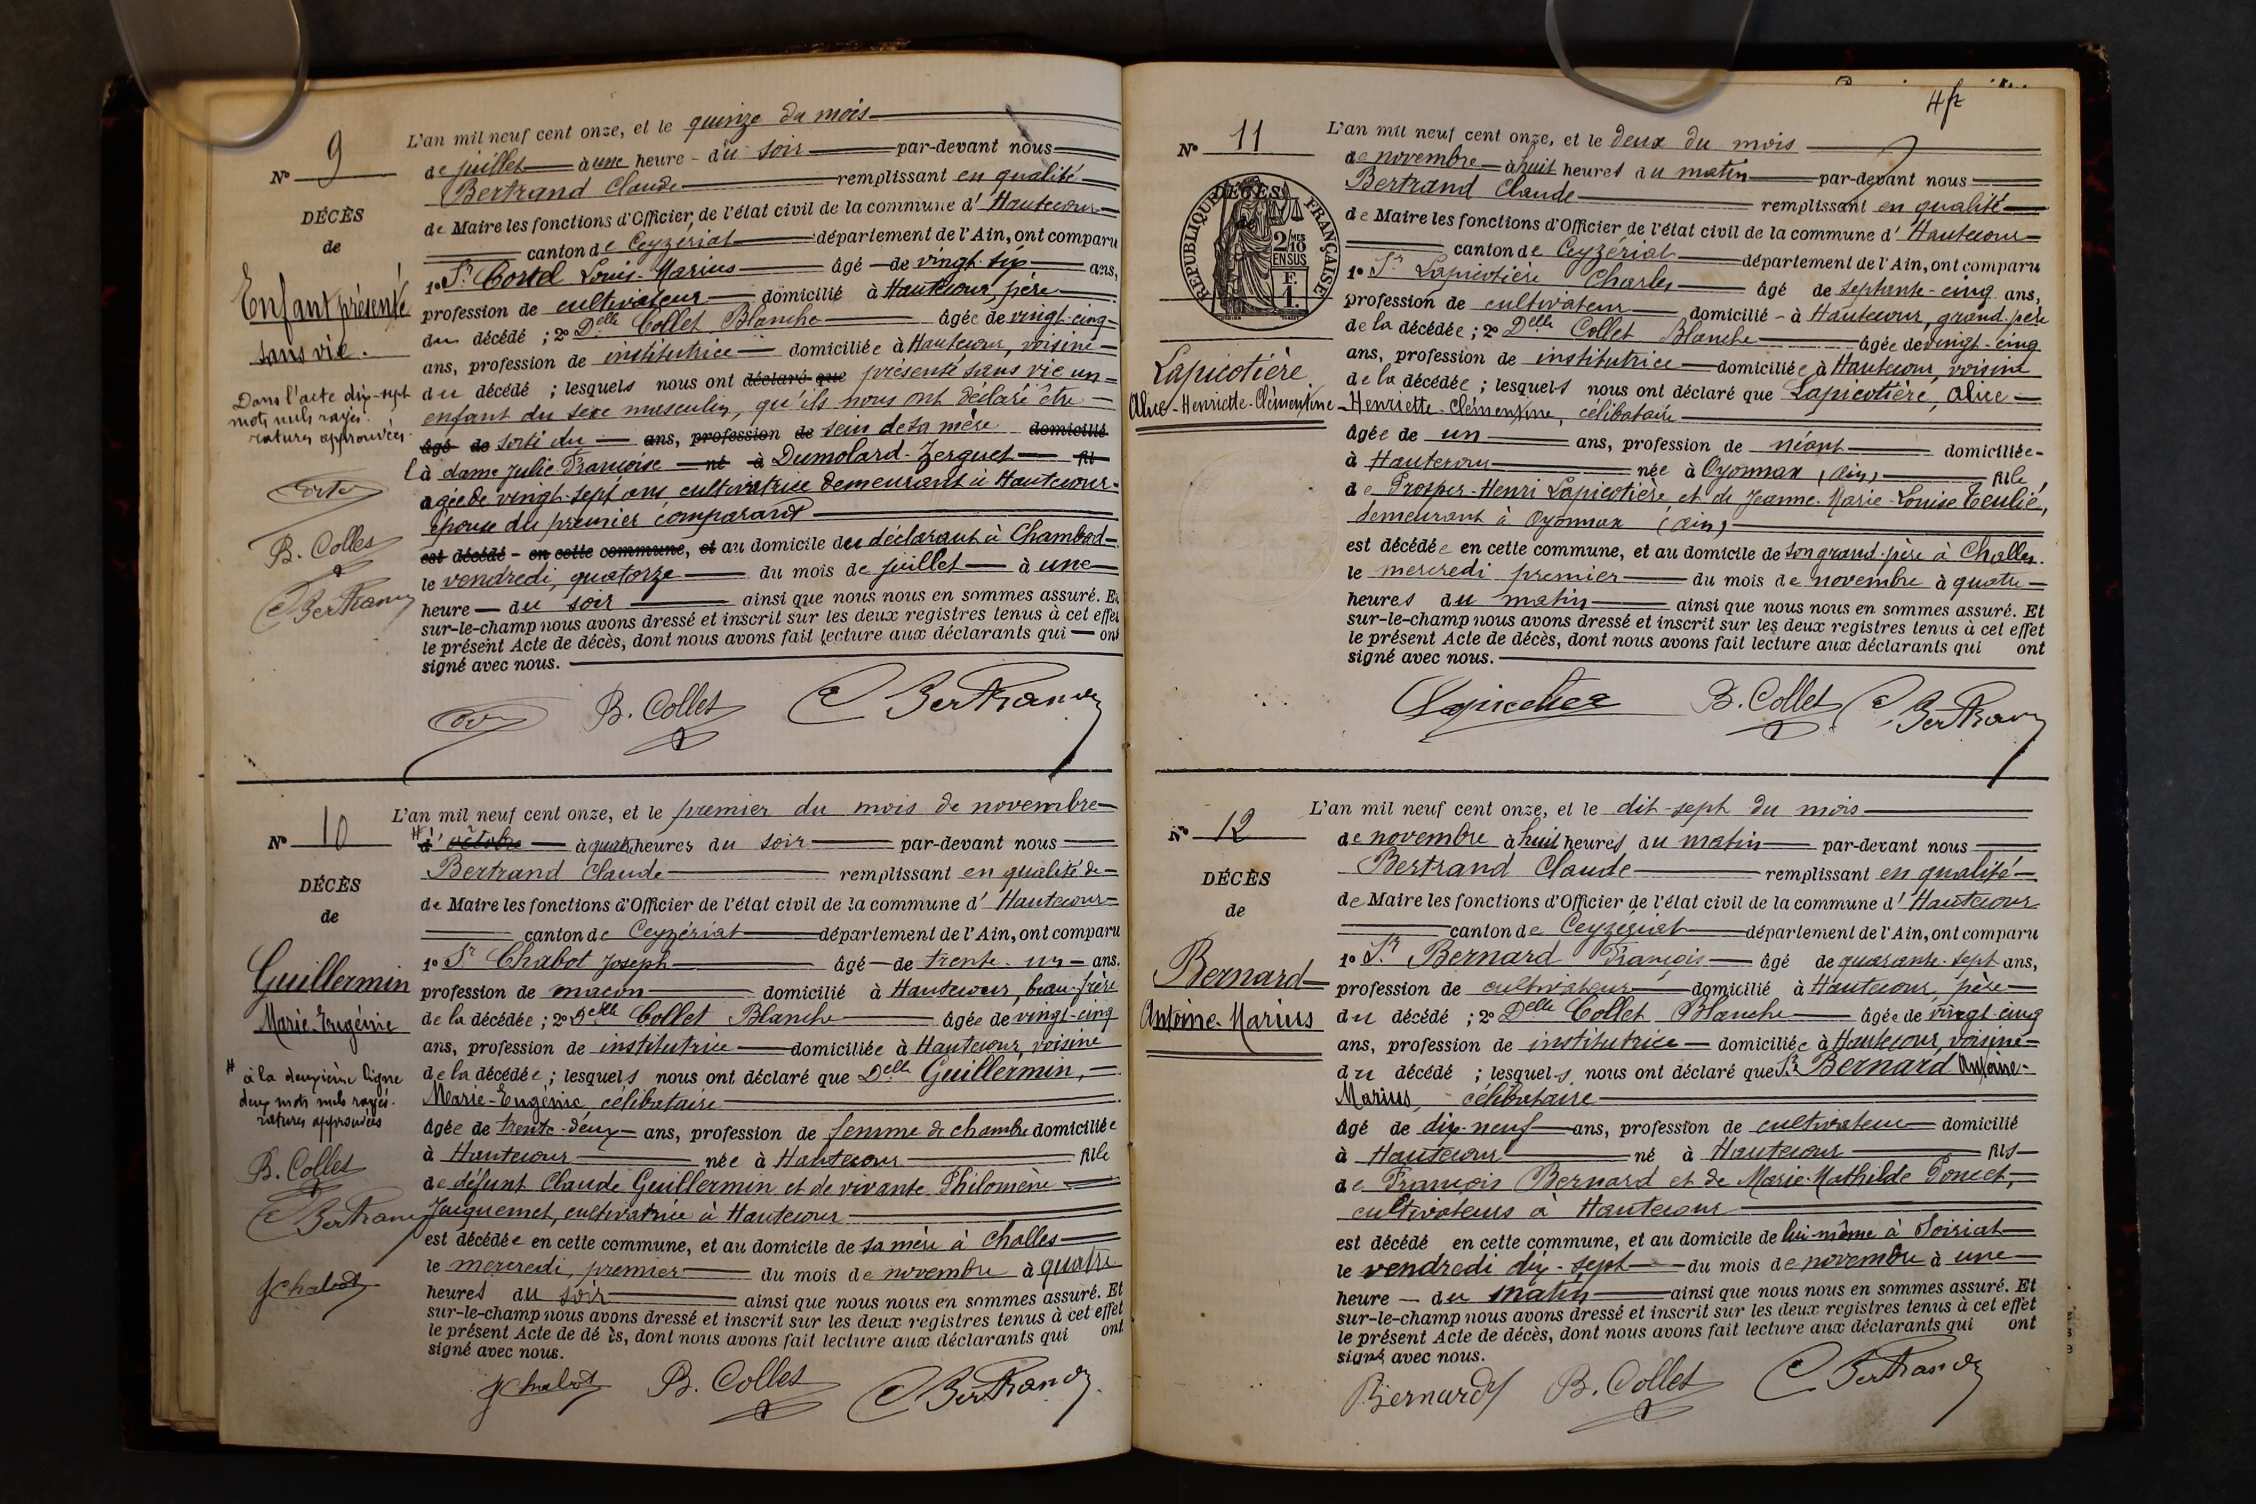 N° 9
DÉCÈS
de
Enfant présenté
sans vie.
Dans l'acte dix-sept
mots nuls rayés.
ratures approuvées.
B. Collet
C Bertrand
L'an mil neuf cent onze, et le quinze du mois
de juillet à une heure du soir par-devant nous
Bertrand Claude remplissant en qualité
de Maire les fonctions d'Officier de l'état civil de la commune d' Hautecour
canton de Ceyzériat département de l'Ain, ont comparu
1° Sr Louis-Marius âgé de vingt-six ans,
profession de cultivateur domicilié à Hautecour, père
du décédé ; 2° Delle Collet Blanche âgée de vingt-cinq
ans, profession de institutrice domiciliée à Hautecour, voisine
du décédé ; lesquels nous ont déclaré que présenté sans vie un
enfant du sexe masculin, qu'ils nous ont déclaré être
âgé de sorti du ans, profession de sein de sa mère domicilié
à dame Julie Françoise né à Dumolard-Zerguet fil
agée de vingt-sept ans cultivatrice demeurant à Hautecour
épouse du premier comparant
est décédé en cette commune, et au domicile du déclarant à Chambod
le vendredi, quatorze du mois de juillet à une
heure du soir ainsi que nous nous en sommes assuré. Et
sur-le-champ nous avons dressé et inscrit sur les deux registres tenus à cet effet
le présent Acte de décès, dont nous avons fait lecture aux déclarants qui ont
signé avec nous.
B. Collet C Bertrand
N° 10
DÉCÈS
de
Guillermin
Marie-Eugénie
# à la deuxième ligne
deux mots nuls rayés.
ratures approuvées
B. Collet
C Bertrand
J Chabot
L'an mil neuf cent onze, et le premier du mois de novembre
# d' octobre à quatre heures du soir par-devant nous
Bertrand Claude remplissant en qualité de
de Maire les fonctions d'Officier de l'état civil de la commune d' Hautecour
canton de Ceyzériat département de l'Ain, ont comparu
1° Sr Chabot Joseph âgé de trente-un ans.
profession de maçon domicilié à Hautecour, beau-frère
de la décédée ; 2° Delle Collet Blanche âgée de vingt-cinq
ans, profession de institutrice domiciliée à Hautecour, voisine
de la décédée ; lesquels nous ont déclaré que Delle Guillermin,
Marie-Eugénie, célibataire
âgée de trente-deux ans, profession de femme de chambre domiciliée
à Hautecour née à Hautecour fille
de défunt Claude Guillermin et de vivante Philomène
Jacquemet, cultivatrice à Hautecour
est décédée en cette commune, et au domicile de sa mère à Challes
le mercredi, premier du mois de novembre à quatre
heures du soir ainsi que nous nous en sommes assuré. Et
sur-le-champ nous avons dressé et inscrit sur les deux registres tenus à cet effet
le présent Acte de dé ès, dont nous avons fait lecture aux déclarants qui ont
signé avec nous.
J Chabot B. Collet C Bertrand
N° 11
DÉCÈS
de
RÉPUBLIQUE FRANÇAISE
2/10 MES
EN SUS
F.
1.
Lapicotière
Alice-Henriette-Clémentine
L'an mil neuf cent onze, et le deux du mois
de novembre à huit heures du matin par-devant nous
Bertrand Claude remplissant en qualité
de Maire les fonctions d'Officier de l'état civil de la commune d' Hautecour
canton de Ceyzériat département de l'Ain, ont comparu
1° Sr Lapicotière Charles âgé de septante-cinq ans,
profession de cultivateur domicilié à Hautecour, grand-père
de la décédée ; 2° Delle Collet Blanche âgée de vingt-cinq
ans, profession de institutrice domiciliée à Hautecour, voisine
de la décédée ; lesquels nous ont déclaré que Lapicotière, Alice
Henriette-Clémentine, célibataire
âgée de un ans, profession de néant domiciliée
à Hautecour née à Oyonnax (Ain) fille
de Prosper-Henri Lapicotière et de Jeanne-Marie-Louise Teulié,
demeurant à Oyonnax (Ain)
est décédée en cette commune, et au domicile de son grand-père à Challes
le mercredi premier du mois de novembre à quatre
heures du matin ainsi que nous nous en sommes assuré. Et
sur-le-champ nous avons dressé et inscrit sur les deux registres tenus à cet effet
le présent Acte de décès, dont nous avons fait lecture aux déclarants qui ont
signé avec nous.
B. Collet C Bertrand
N° 12
DÉCÈS
de
Bernard
Antoine-Marius
L'an mil neuf cent onze, et le dix-sept du mois
de novembre à huit heures du matin par-devant nous
Bertrand Claude remplissant en qualité
de Maire les fonctions d'Officier de l'état civil de la commune d' Hautecour
canton de Ceyzériat département de l'Ain, ont comparu
1° Sr Bernard François âgé de quarante-sept ans,
profession de cultivateur domicilié à Hautecour, père
du décédé ; 2° Delle Collet Blanche âgée de vingt-cinq
ans, profession de institutrice domiciliée à Hautecour, voisine
du décédé ; lesquels nous ont déclaré que Sr Bernard Antoine-
Marius, célibataire
âgé de dix-neuf ans, profession de cultivateur domicilié
à Hautecour né à Hautecour fils
de François Bernard et de Marie-Mathilde Poncet,
cultivateurs à Hautecour
est décédé en cette commune, et au domicile de lui-même à Soiriat
le vendredi dix-sept du mois de novembre à une
heure du matin ainsi que nous nous en sommes assuré. Et
sur-le-champ nous avons dressé et inscrit sur les deux registres tenus à cet effet
le présent Acte de décès, dont nous avons fait lecture aux déclarants qui ont
signé avec nous.
Bernard B. Collet C Bertrand